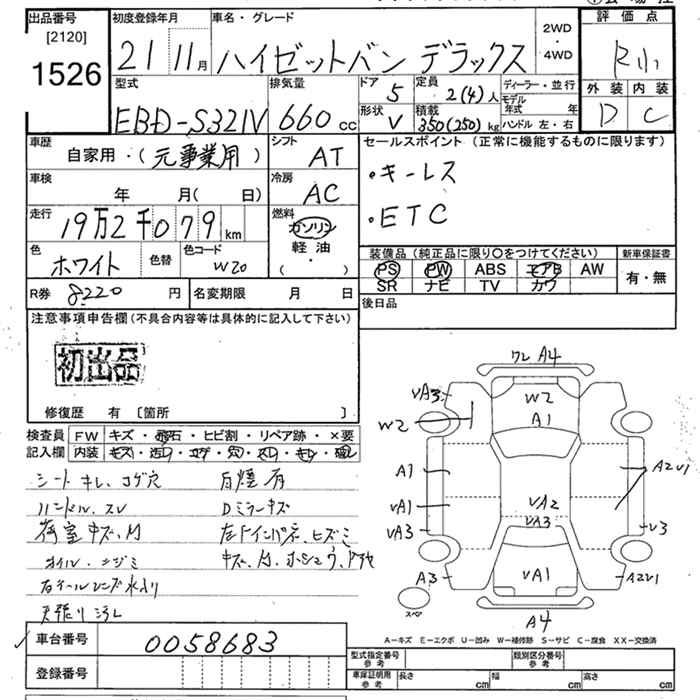 出品番号
[2120]
1526
初度登録年月
21 11月
車名・グレード
ハイゼットバン デラックス
2WD
・
4WD
評価点
R小
外装 内装
D C
型式
EBD-S321V
排気量
660 cc
ドア
5
定員
2(4)人
形状
V
積載
350(250)kg
ディーラー・並行
モデル年式 年
ハンドル 左・右
車歴
自家用・(元事業用)
シフト
AT
セールスポイント (正常に機能するものに限ります)
・キーレス
・ETC
車検
年 月( 日)
冷房
AC
走行
19万2千079km
燃料
ガソリン
軽油
( ・ )
色
ホワイト
色替
色コード
W20
装備品 (純正品に限り○をつけてください)
新車保証書
PS PW ABS エアB AW
SR ナビ TV カワ
有・無
R券 8220 円
名変期限 月 日
後日品
注意事項申告欄(不具合内容等は具体的に記入して下さい)
初出品
修復歴 有 [箇所 ]
検査員
記入欄
FW キズ・飛石・ヒビ割・リペア跡・×要
内装 キズ・汚レ・コゲ・穴・スレ・キレ・破レ
シート キレ、コゲ穴
ハンドル、スレ
荷室 キズ、M
オイル・ニジミ
右テールレンズ水入り
天張り汚レ
Dミラーキズ
ワレ A4
VA3
W2
W2
A1
A1
VA1
VA3
A3
VA2
VA3
VA1
A2U1
U3
A2U1
A4
スペア
A－キズ E－エクボ U－凹み W－補修跡 S－サビ C－腐食 XX－交換済
車台番号
0058683
登録番号
型式指定番号
参考
類別区分番号
参考
車庫証明用
参考
長さ cm 幅 cm 高さ cm